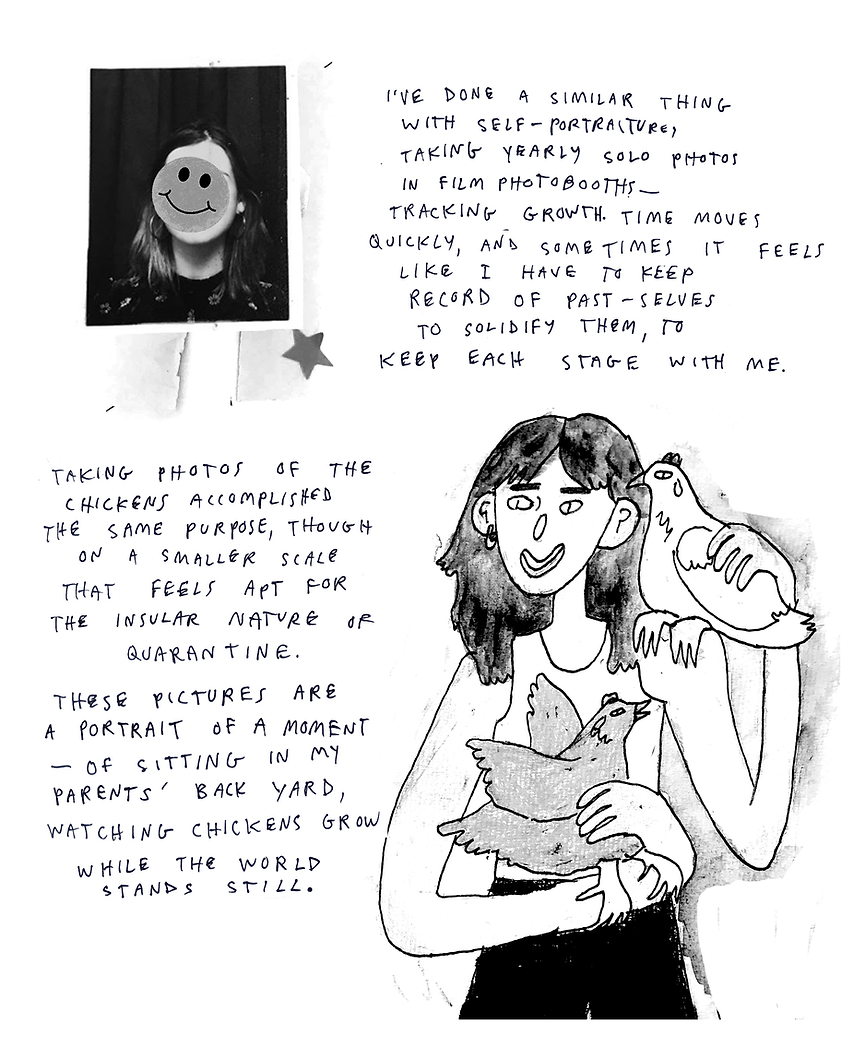 I'VE DONE A SIMILAR THING
WITH SELF-PORTRAITURE,
TAKING YEARLY SOLO PHOTOS
IN FILM PHOTOBOOTHS—
TRACKING GROWTH. TIME MOVES
QUICKLY, AND SOMETIMES IT FEELS
LIKE I HAVE TO KEEP
RECORD OF PAST-SELVES
TO SOLIDIFY THEM, TO
KEEP EACH STAGE WITH ME.
TAKING PHOTOS OF THE
CHICKENS ACCOMPLISHED
THE SAME PURPOSE, THOUGH
ON A SMALLER SCALE
THAT FEELS APT FOR
THE INSULAR NATURE OF
QUARANTINE.
THESE PICTURES ARE
A PORTRAIT OF A MOMENT
— OF SITTING IN MY
PARENTS' BACK YARD,
WATCHING CHICKENS GROW
WHILE THE WORLD
STANDS STILL.